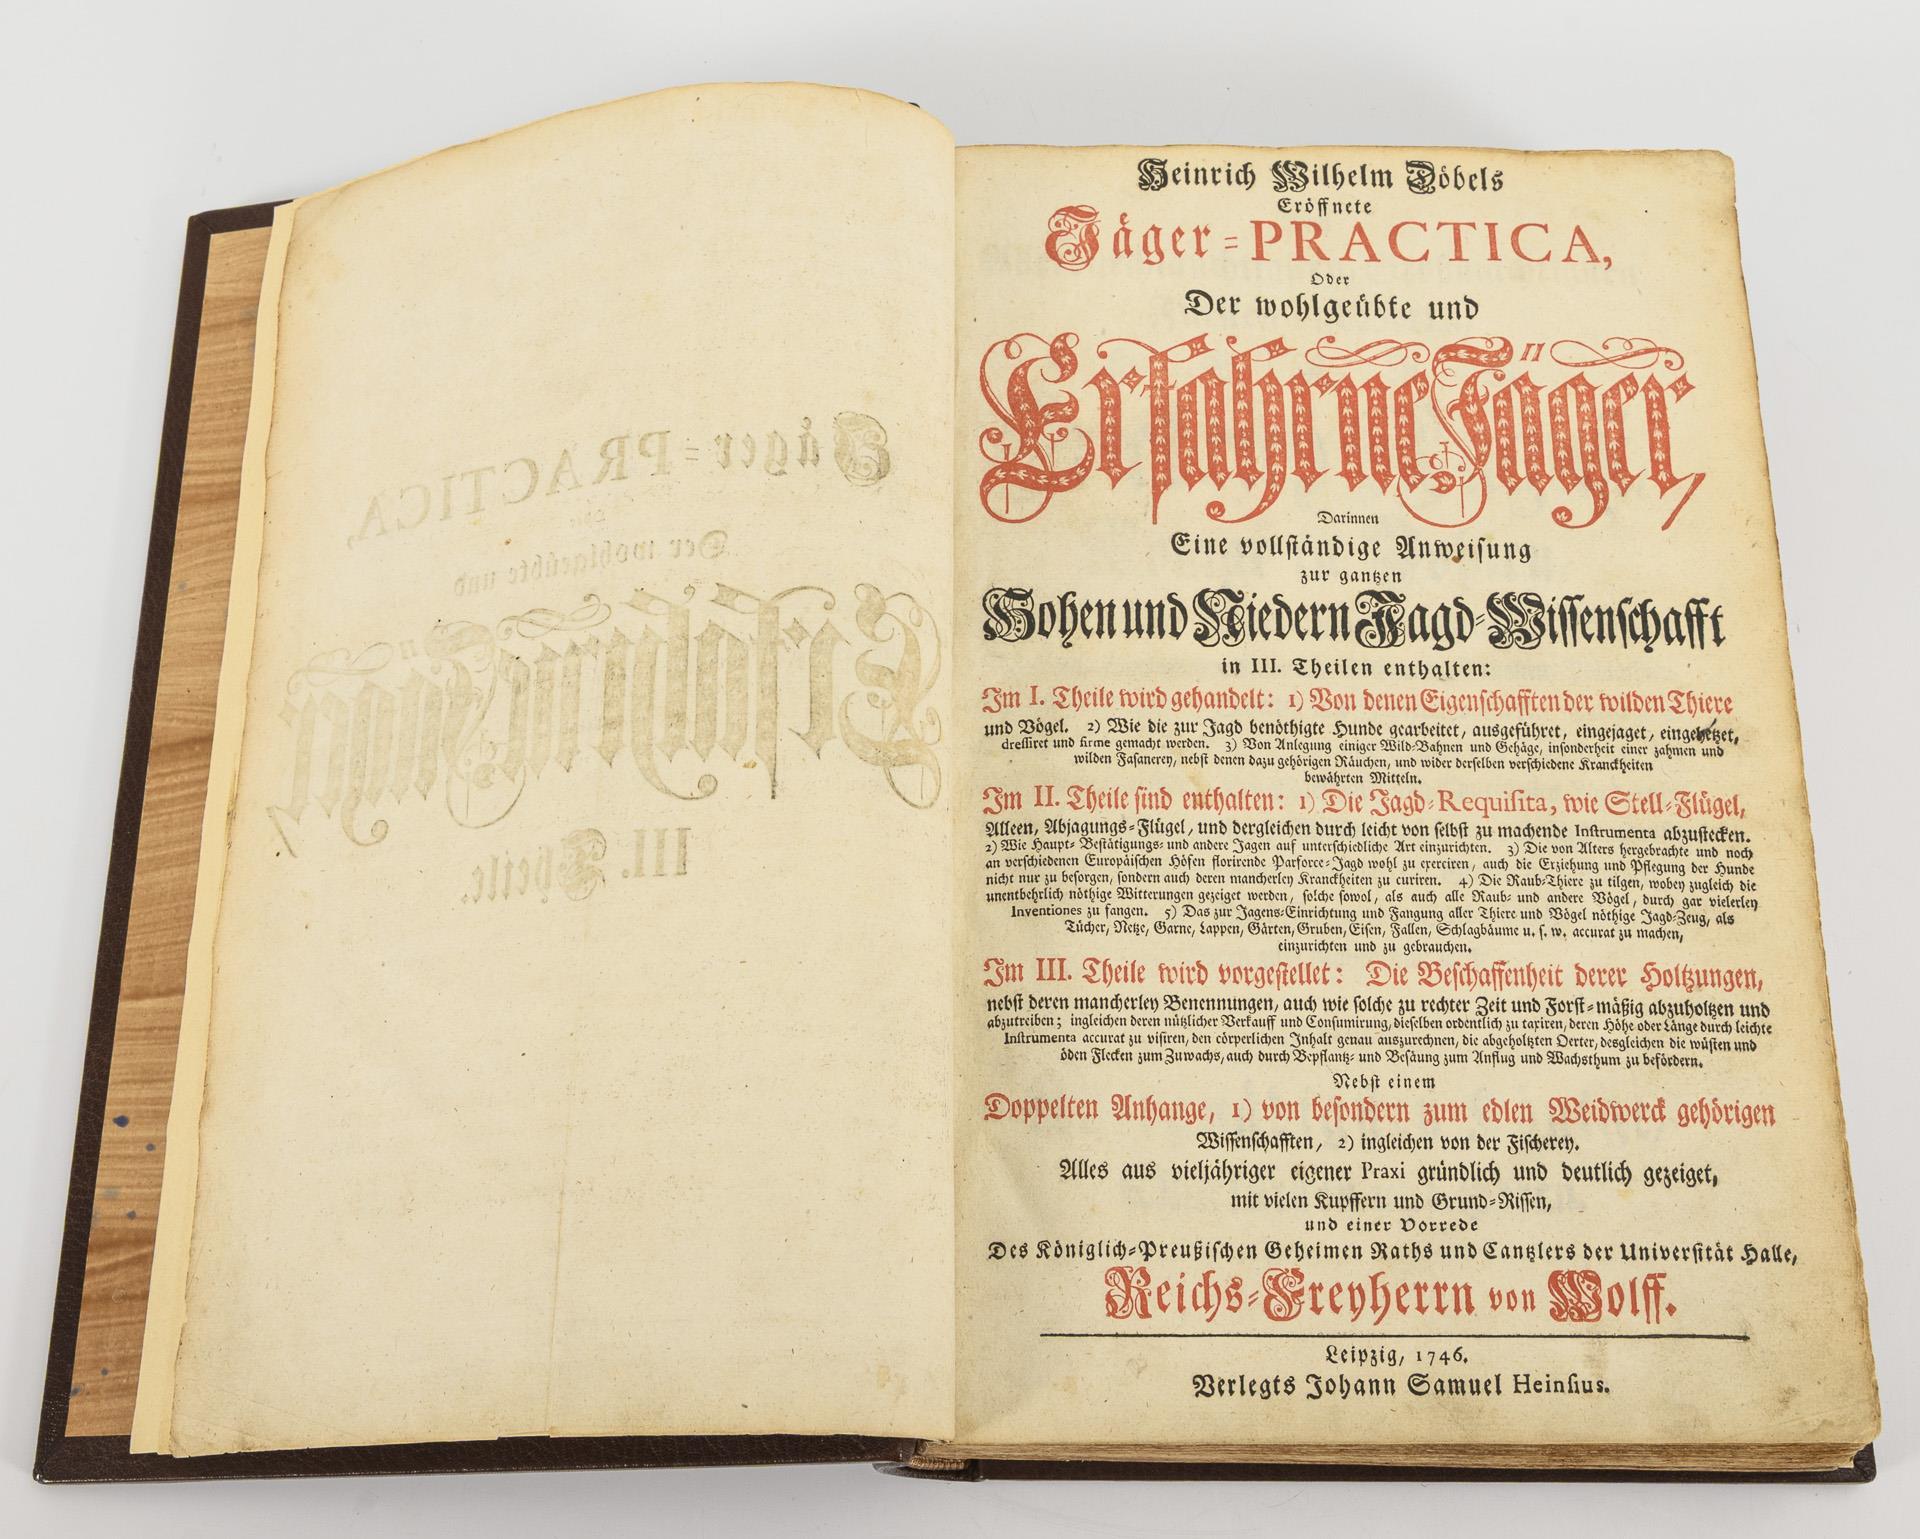 Jäger=PRACTICA,
Oder
Der wohlgeübte und
Erfahrne Jäger,
III. Theile.
Heinrich Wilhelm Döbels
Eröffnete
Jäger=PRACTICA,
Oder
Der wohlgeübte und
Erfahrne Jäger,
Darinnen
Eine vollständige Anweisung
zur gantzen
Hohen und Niedern Jagd=Wissenschafft
in III. Theilen enthalten:
Im I. Theile wird gehandelt: 1) Von denen Eigenschafften der wilden Thiere
und Vögel. 2) Wie die zur Jagd benöthigte Hunde gearbeitet, ausgeführet, eingejaget, eingehetzet,
dressiret und firme gemacht werden. 3) Von Anlegung einiger Wild=Bahnen und Gehäge, insonderheit einer zahmen und
wilden Fasanerey, nebst denen dazu gehörigen Räuchen, und wider derselben verschiedene Kranckheiten
bewährten Mitteln.
Im II. Theile sind enthalten: 1) Die Jagd=Requisita, wie Stell=Flügel,
Alleen, Abjagungs=Flügel, und dergleichen durch leicht von selbst zu machende Instrumenta abzustecken.
2) Wie Haupt= Bestätigungs= und andere Jagen auf unterschiedliche Art einzurichten. 3) Die von Alters hergebrachte und noch
an verschiedenen Europäischen Höfen florirende Parforce=Jagd wohl zu exerciren, auch die Erziehung und Pflegung der Hunde
nicht nur zu besorgen, sondern auch deren mancherley Kranckheiten zu curiren. 4) Die Raub=Thiere zu tilgen, wobey zugleich die
unentbehrlich nöthige Witterungen gezeiget werden, solche sowol, als auch alle Raub= und andere Vögel, durch gar vielerley
Inventiones zu fangen. 5) Das zur Jagens=Einrichtung und Fangung aller Thiere und Vögel nöthige Jagd=Zeug, als
Tücher, Netze, Garne, Lappen, Gärten, Gruben, Eisen, Fallen, Schlagbäume u. s. w. accurat zu machen,
einzurichten und zu gebrauchen.
Im III. Theile wird vorgestellet: Die Beschaffenheit derer Holtzungen,
nebst deren mancherley Benennungen, auch wie solche zu rechter Zeit und Forst=mäßig abzuholtzen und
abzutreiben; ingleichen deren nützlicher Verkauff und Consumirung, dieselben ordentlich zu taxiren, deren Höhe oder Länge durch leichte
Instrumenta accurat zu visiren, den cörperlichen Inhalt genau auszurechnen, die abgeholtzten Oerter, desgleichen die wüsten und
öden Flecken zum Zuwachs, auch durch Bepflantz= und Besäung zum Anflug und Wachsthum zu befördern.
Nebst einem
Doppelten Anhange, 1) von besondern zum edlen Weidwerck gehörigen
Wissenschafften, 2) ingleichen von der Fischerey.
Alles aus vieljähriger eigener Praxi gründlich und deutlich gezeiget,
mit vielen Kupffern und Grund=Rissen,
und einer Vorrede
Des Königlich=Preußischen Geheimen Raths und Cantzlers der Universität Halle,
Reichs=Freyherrn von Wolff.
Leipzig, 1746.
Verlegts Johann Samuel Heinsius.